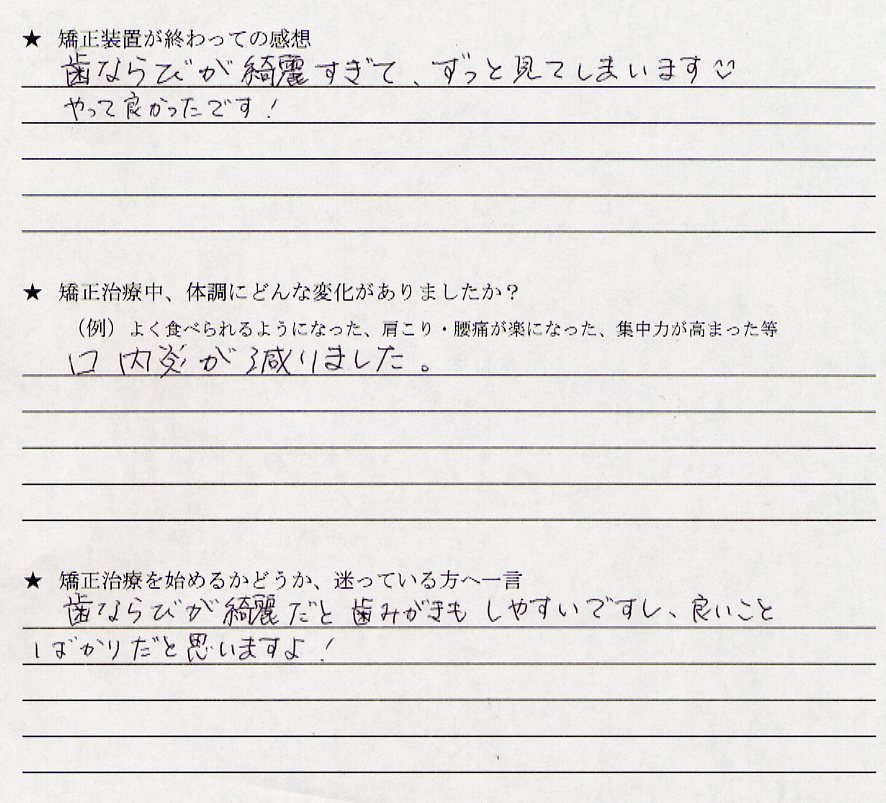 ★ 矯正装置が終わっての感想
歯ならびが綺麗すぎて、ずっと見てしまいます
やって良かったです！
★ 矯正治療中、体調にどんな変化がありましたか？
（例）よく食べられるようになった、肩こり・腰痛が楽になった、集中力が高まった等
口内炎が減りました。
★ 矯正治療を始めるかどうか、迷っている方へ一言
歯ならびが綺麗だと歯みがきもしやすいですし、良いこと
ばかりだと思いますよ！